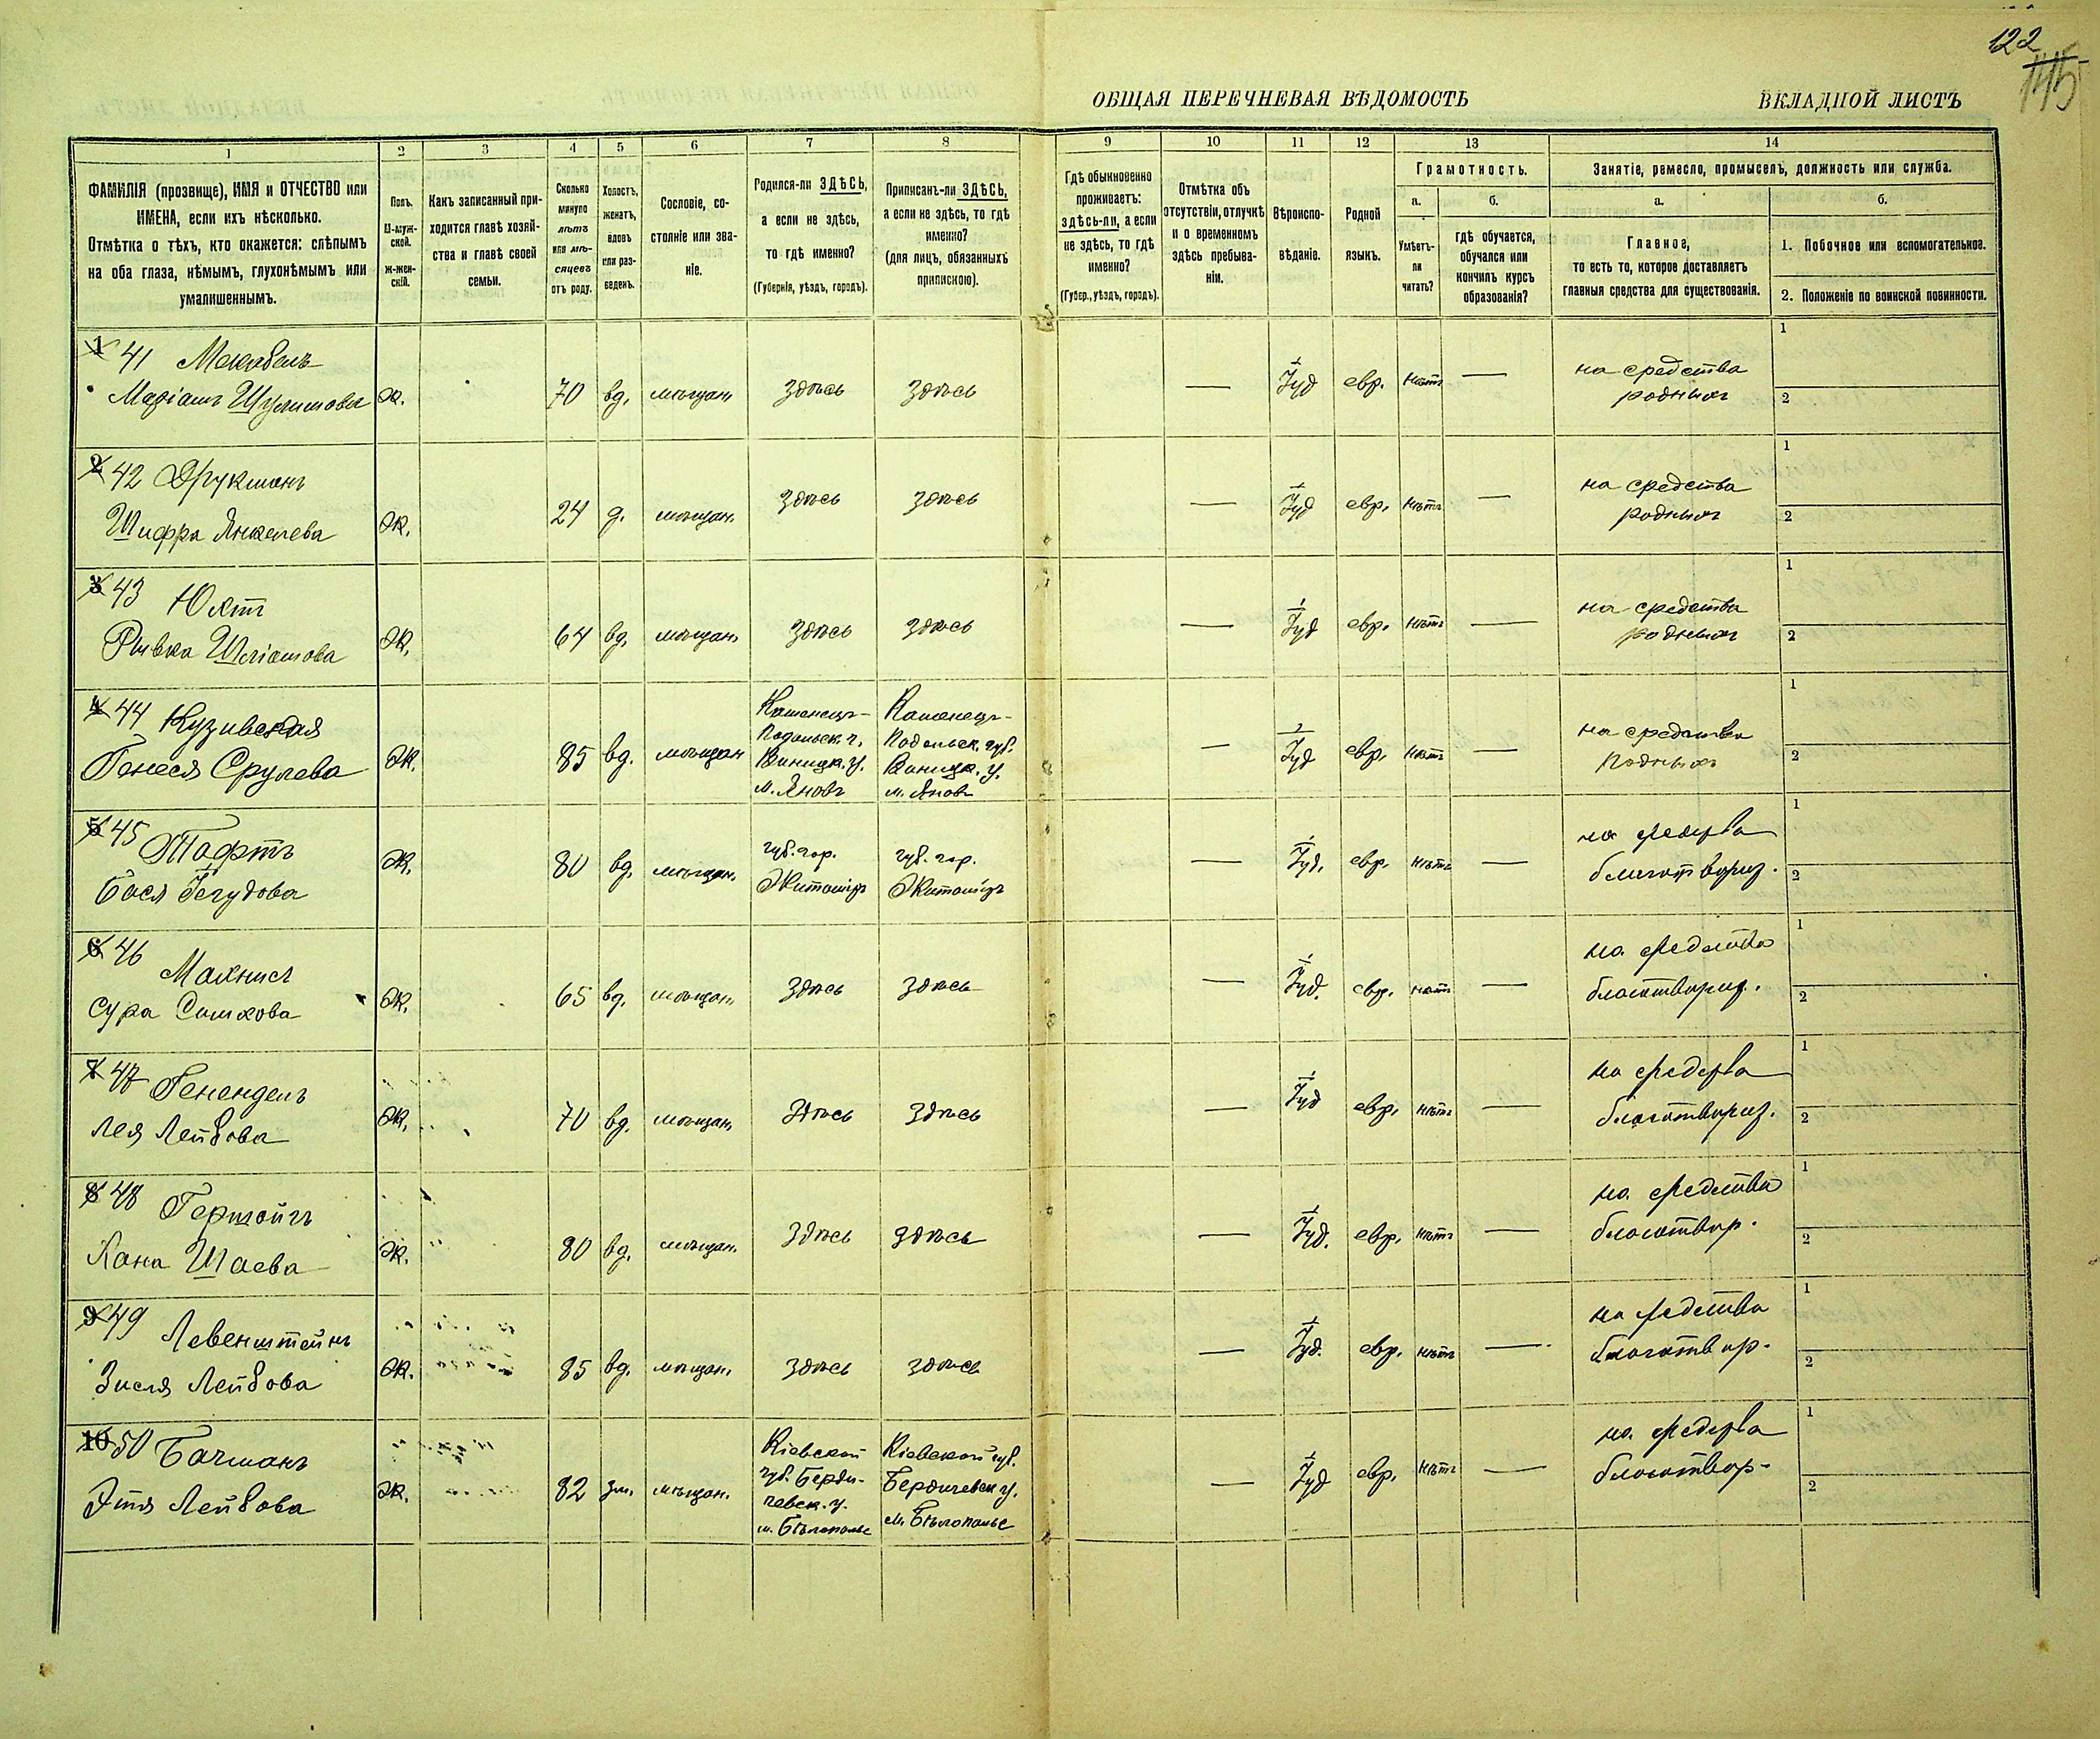 122
145
ОБЩАЯ ПЕРЕЧНЕВАЯ ВѢДОМОСТЬ
ВКЛАДНОЙ ЛИСТЪ
1 2 3 4 5 6 7 8 9 10 11 12 13 14
ФАМИЛІЯ (прозвище), ИМЯ и ОТЧЕСТВО или
ИМЕНА, если ихъ нѣсколько.
Отмѣтка о тѣхъ, кто окажется: слѣпымъ
на оба глаза, нѣмымъ, глухонѣмымъ или
умалишеннымъ.
Полъ.
М-муж-
ской.
Ж-жен-
скій.
Какъ записанный при-
ходится главѣ хозяй-
ства и главѣ своей
семьи.
Сколько
минуло
лѣтъ
или мѣ-
сяцевъ
отъ роду.
Холостъ,
женатъ,
вдовъ
или раз-
веденъ.
Сословіе, со-
стояніе или зва-
ніе.
Родился-ли ЗДѢСЬ,
а если не здѣсь,
то гдѣ именно?
(Губернія, уѣздъ, городъ).
Приписанъ-ли ЗДѢСЬ,
а если не здѣсь, то гдѣ
именно?
(для лицъ, обязанныхъ
припискою).
Гдѣ обыкновенно
проживаетъ:
здѣсь-ли, а если
не здѣсь, то гдѣ
именно?
(Губер., уѣздъ, городъ).
Отмѣтка объ
отсутствіи, отлучкѣ
и о временномъ
здѣсь пребыва-
ніи.
Вѣроиспо-
вѣданіе.
Родной
языкъ.
Грамотность.
а.
Умѣетъ-
ли
читать?
б.
гдѣ обучается,
обучался или
кончилъ курсъ
образованія?
Занятіе, ремесло, промыселъ, должность или служба.
а.
Главное,
то есть то, которое доставляетъ
главныя средства для существованія.
б.
1. Побочное или вспомогательное.
2. Положеніе по воинской повинности.
1 41
Маріамъ Шулимова Ж. 70 вд. мѣщан. здѣсь здѣсь — Іуд евр. нѣтъ —
на средства
родныхъ
1
2
2 42 Друкманъ
Шифра Янкелева Ж. 24 д. мѣщан. здѣсь здѣсь — Іуд евр. нѣтъ —
на средства
родныхъ
1
2
3 43 Юхтъ
Рывка Ж. 64 вд. мѣщан. здѣсь здѣсь — Іуд евр. нѣтъ —
на средства
родныхъ
1
2
4 44
Генеся Срулева Ж. 85 вд. мѣщан
Каменецъ-
Подольск. г.
Виницк. у.
м. Яновъ
Каменецъ-
Подольск. губ.
Виницк. у.
м. Яновъ
— Іуд евр. нѣтъ —
на средства
родныхъ
1
2
5 45
Бася Іегудова Ж. 80 вд. мѣщан.
губ. гор.
Житоміръ
губ. гор.
Житоміръ
— Іуд. евр. нѣтъ —
на средства
благотвориз.
1
2
6 46
Сура Симхова Ж. 65 вд. мѣщан. здѣсь здѣсь — Іуд. евр. нѣтъ —
на средства
благотвориз.
1
2
7 47 Генендель
Лея Лейбова Ж. 70 вд. мѣщан. здѣсь здѣсь — Іуд евр. нѣтъ —
на средства
благотвориз.
1
2
8 48
Хана Шаева Ж. 80 вд. мѣщан. здѣсь здѣсь — Іуд. евр. нѣтъ —
на средства
благотвор.
1
2
9 49 Левенштейнъ
Зисля Лейбова Ж. 85 вд. мѣщан. здѣсь здѣсь — Іуд. евр. нѣтъ —
на средства
благотвор.
1
2
10 50 Бачманъ
Этя Лейбова Ж. 82 зм. мѣщан.
Кіевской
губ. Берди-
чевск. у.
м. Бѣлополье
Кіевской губ.
Бердичевск у.
м. Бѣлополье
— Іуд евр. нѣтъ —
на средства
благотвор-
1
2